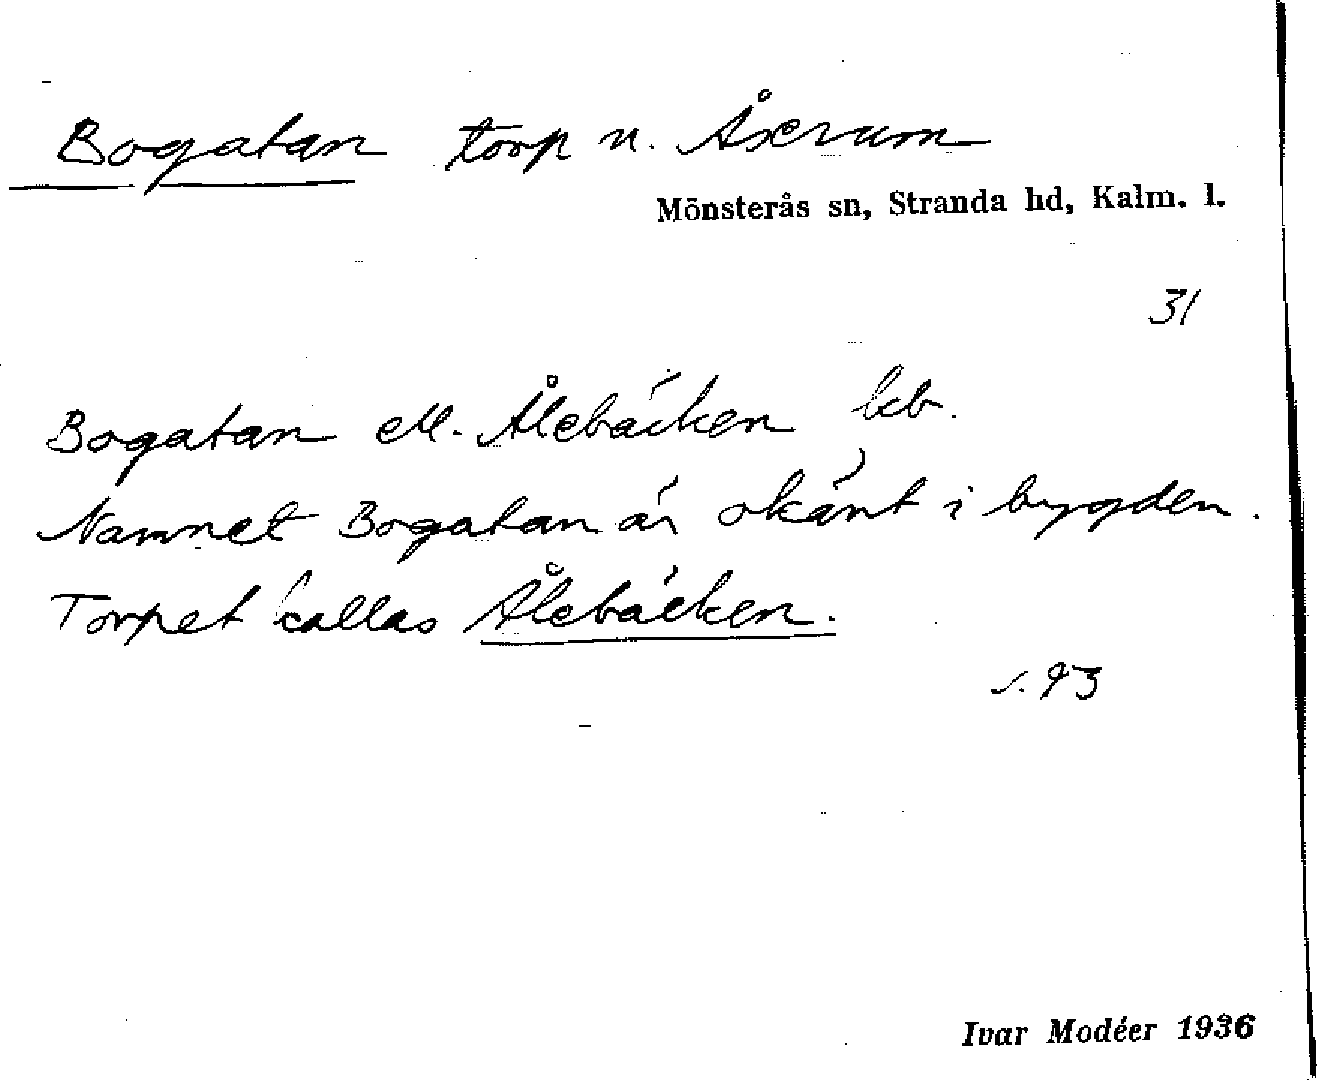 Bogatan torp u. Åserum
Mönsterås sn, Stranda hd, Kalm. l.
31
Bogatan ell. Ålebäcken kb.
Namnet Bogatan är okänt i bygden.
Torpet kallas Ålebäcken.
s. 93
Ivar Modéer 1936